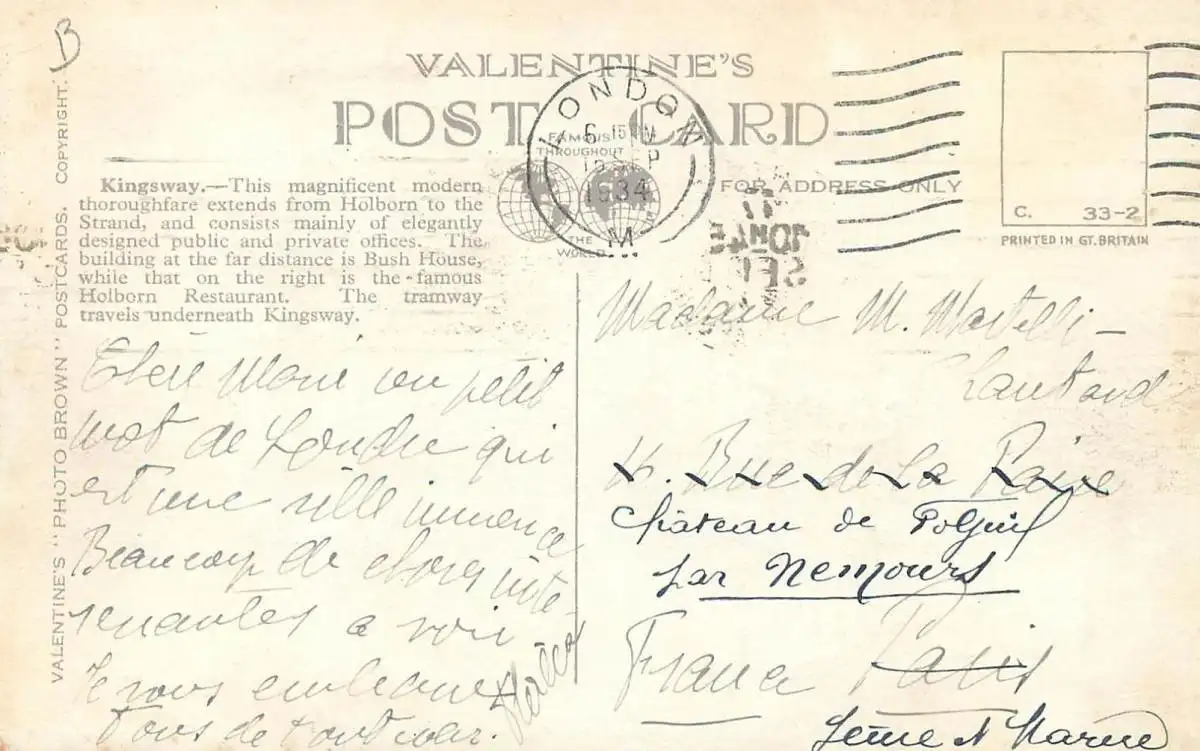 B
VALENTINE'S
POST CARD
FAMOUS
THROUGHOUT
THE
WORLD
LONDON
6 15 PM
SEP
1934
FOR ADDRESS ONLY
C. 33-2
PRINTED IN GT. BRITAIN
VALENTINE'S "PHOTO BROWN" POSTCARDS. COPYRIGHT.
Kingsway.—This magnificent modern
thoroughfare extends from Holborn to the
Strand, and consists mainly of elegantly
designed public and private offices. The
building at the far distance is Bush House,
while that on the right is the famous
Holborn Restaurant. The tramway
travels underneath Kingsway.
Chère Marie un petit
mot de Londre qui
est une ville immence
Beaucoup de choses inté-
ressantes a voir
Je vous embrasse
tous de tout cœur.
Madame M. Martelli-
Lautard
4. Rue de la Paix
Château de
par Nemours
France Paris
Seine et Marne